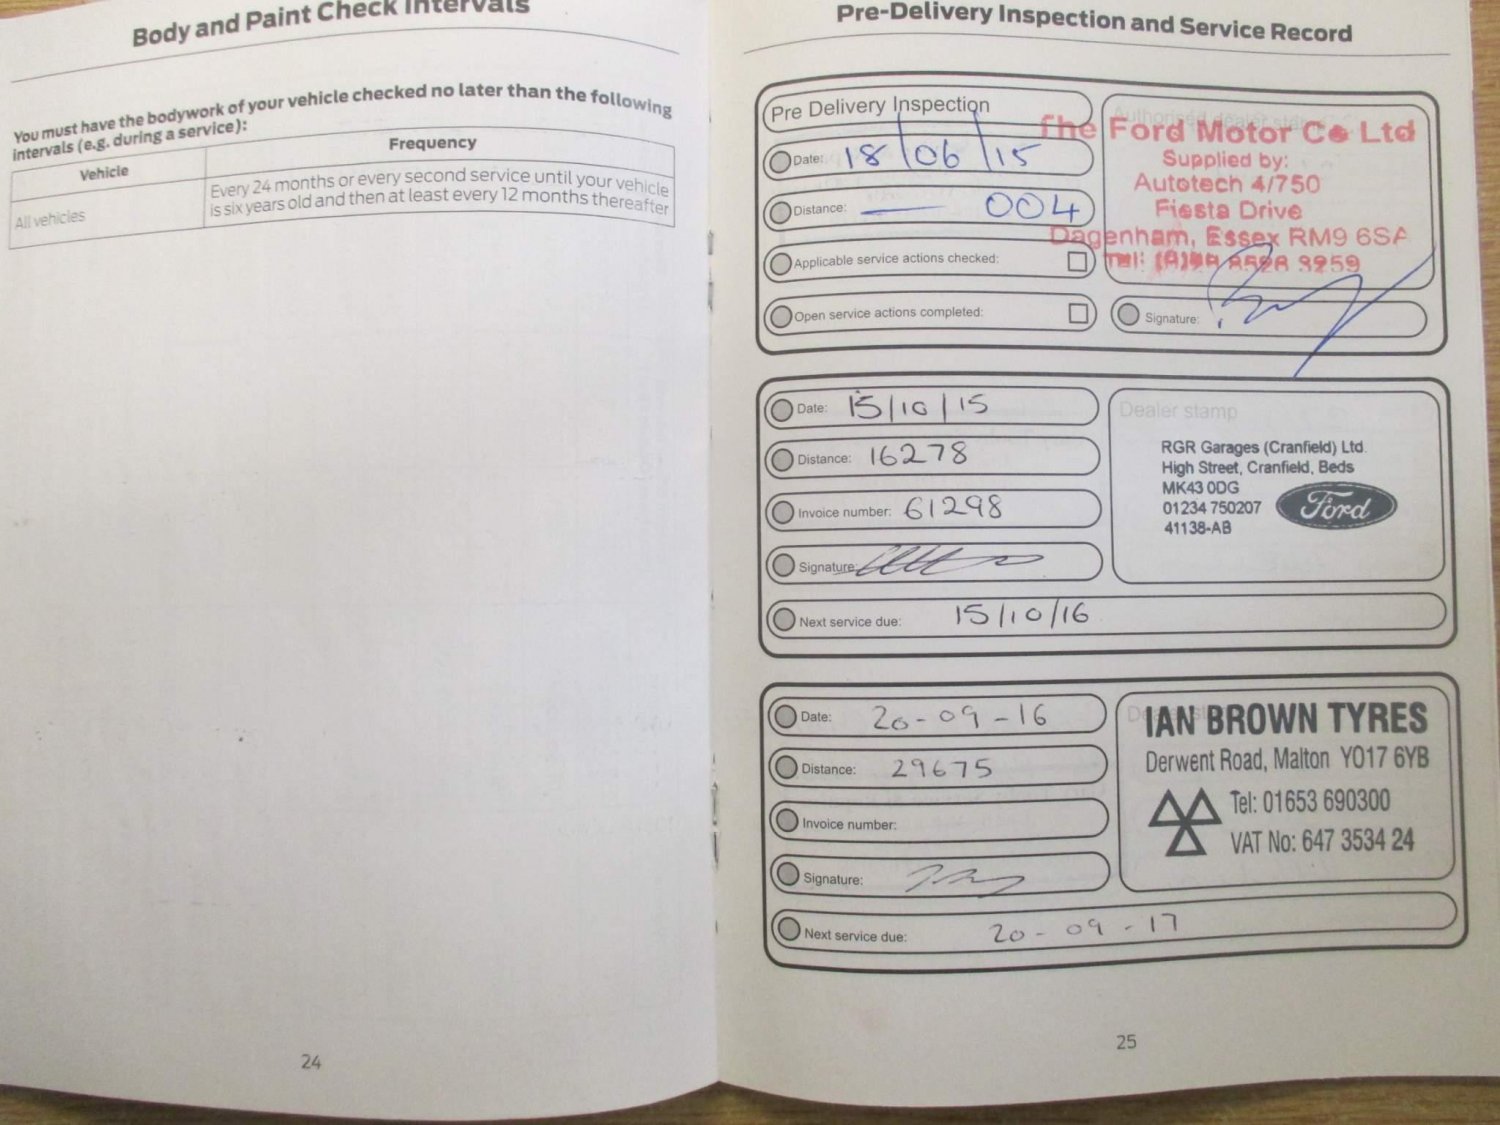 Body and Paint Check Intervals
You must have the bodywork of your vehicle checked no later than the following
intervals (e.g. during a service):
Vehicle
Frequency
All vehicles
Every 24 months or every second service until your vehicle
is six years old and then at least every 12 months thereafter
24
Pre-Delivery Inspection and Service Record
Pre Delivery Inspection
Date: 18/06/15
Distance: — 004
Applicable service actions checked:
Open service actions completed:
Authorised dealer stamp
The Ford Motor Co Ltd
Supplied by:
Autotech 4/750
Fiesta Drive
Dagenham, Essex RM9 6SA
Tel:
Signature:
Date: 15/10/15
Distance: 16278
Invoice number: 61298
Signature:
Next service due: 15/10/16
Dealer stamp
RGR Garages (Cranfield) Ltd.
High Street, Cranfield, Beds
MK43 0DG
01234 750207
41138-AB
Ford
Date: 20-09-16
Distance: 29675
Invoice number:
Signature:
Next service due: 20-09-17
IAN BROWN TYRES
Derwent Road, Malton YO17 6YB
Tel: 01653 690300
VAT No: 647 3534 24
25